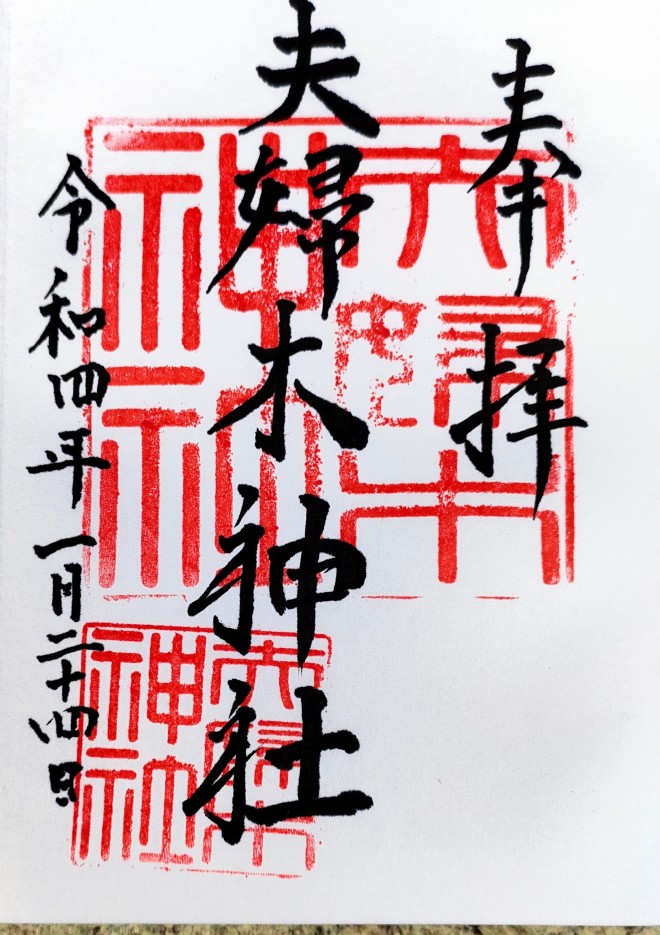 奉拝
夫婦木神社
令和四年一月二十四日
夫婦木神社
夫婦木神社